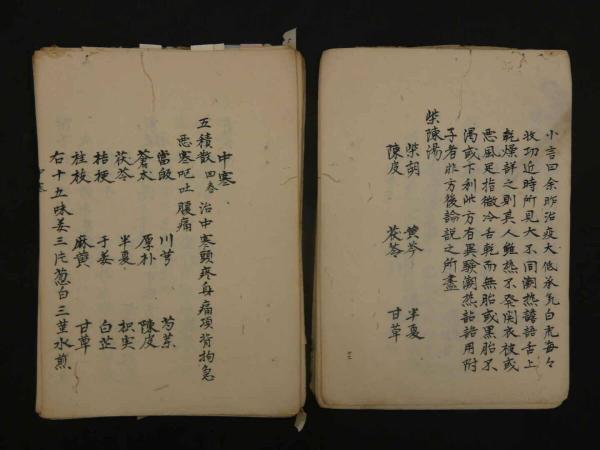 小言四余昨治疫大低承気白虎每々
收功近時所見大不同潮熱譫語舌上
乾燥詳之則其人雖熱不発閑衣被或
悪風足指微冷舌乾而無胎或黒胎不
渇或下利此方有異驗潮熱譫語用附
子者非方後論説之所盡
柴陳湯
柴胡 黄芩 半夏
陳皮 茯苓 甘草
中寒
五積散 四春 治中寒頭疼身痛項背拘急
悪寒呕吐腹痛
當皈 川芎 芍薬
蒼朮 厚朴 陳皮
茯苓 半夏 枳実
桔梗 干姜 白芷
桂枝 麻黄 甘草
右十五味姜三片葱白三茎水煎
中寒